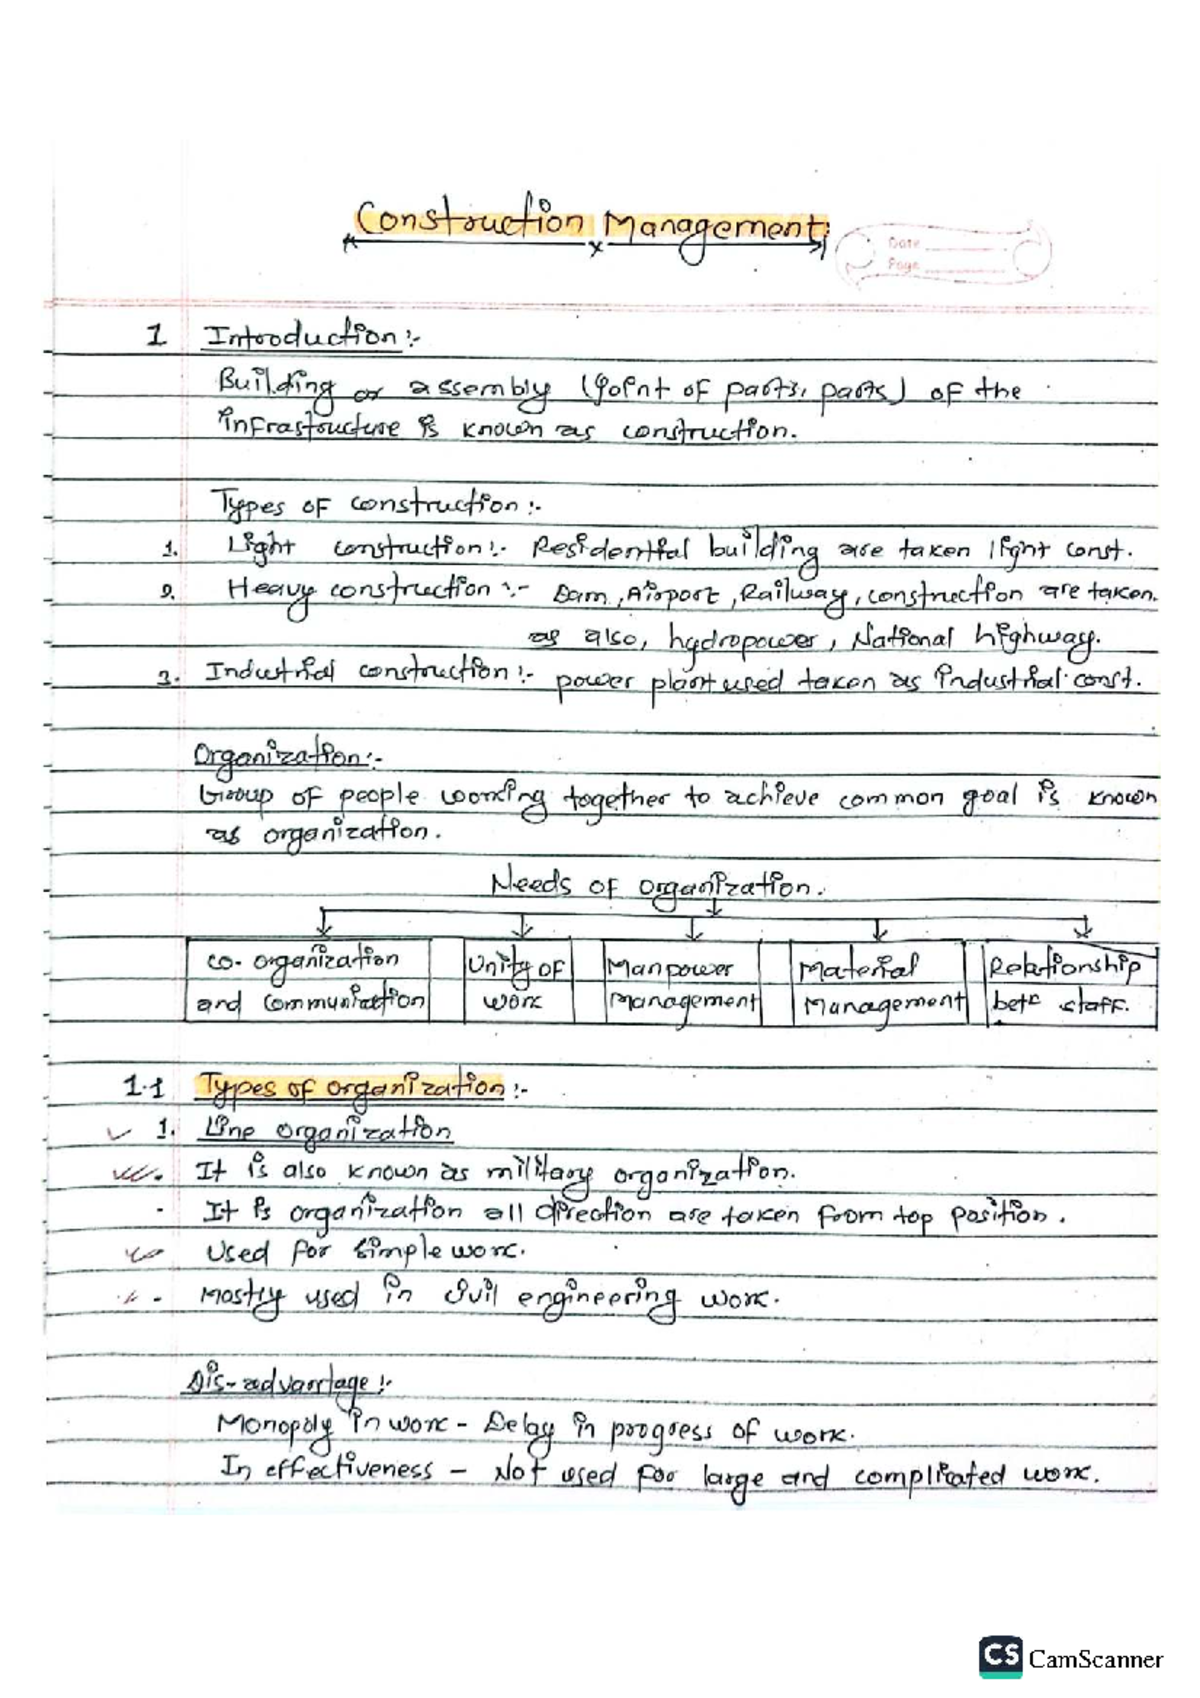 Construction Management
Date
Page
1 Introduction:-
Building or assembly (Joint of parts, parts) of the
infrastructure is known as construction.
Types of construction:-
1. Light construction:- Residential building are taken light const.
2. Heavy construction:- Dam, Airport, Railway, construction are taken.
as also, hydropower, National highway.
3. Industrial construction:- power plant used taken as industrial const.
Organization:-
Group of people working together to achieve common goal is known
as organization.
Needs of organization.
co-organization Unity of Manpower Material Relationship
and communication work Management Management betn staff.
1.1 Types of organization:-
1. Line organization
It is also known as military organization.
It is organization all direction are taken from top position.
Used for simple work.
Mostly used in civil engineering work.
Dis-advantage:-
Monopoly in work - Delay in progress of work.
In effectiveness - Not used for large and complicated work.
CS CamScanner